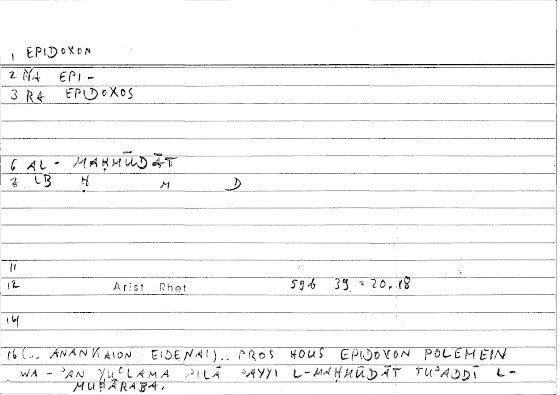 1 EPIDOXON
2 NA EPI-
3 RA EPIDOXOS
6 AL-MAḤMŪDĀT
8 LB Ḥ M D
11
12 Arist Rhet 59b 39 = 20,18
14
16 (.. ANANKAION EIDENAI).. PROS HOUS EPIDOXON POLEMEIN
WA-ʾAN YUʿLAMA ʾILĀ ʾAYYI L-MAḤMŪDĀT TUʾADDĪ L-
MUḤĀRABA.